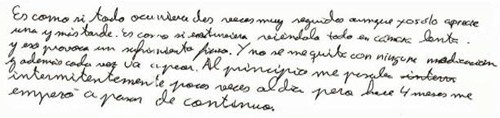 Es como si todo ocurriera dos veces muy seguidas aunque yo solo aprecie
una y más tarde. Es como si estuviera viéndolo todo en cámara lenta.
y eso provoca un sufrimiento físico. Y no se me quita con ninguna medicación
y además cada vez va a peor. Al principio me pasaba
intermitentemente pocas veces al día pero hace 4 meses me
empezó a pasar de continuo.